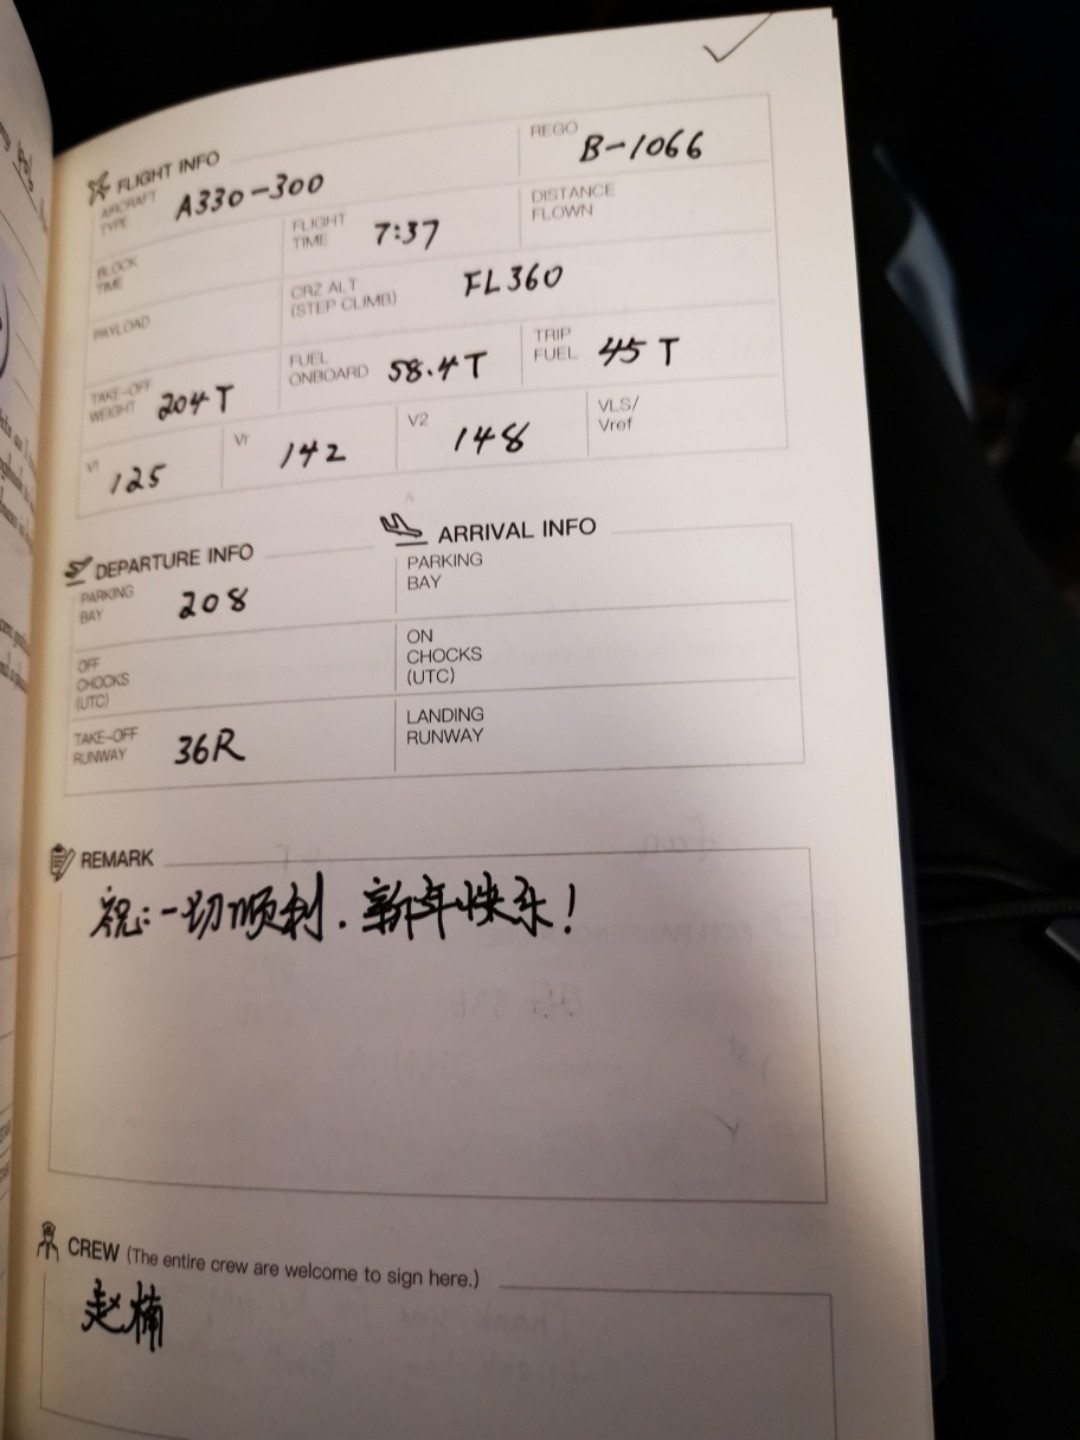 FLIGHT INFO
AIRCRAFT TYPE A330-300
REGO B-1066
BLOCK TIME
FLIGHT TIME 7:37
DISTANCE FLOWN
PAYLOAD
CRZ ALT (STEP CLIMB) FL360
TAKE-OFF WEIGHT 204T
FUEL ONBOARD 58.4T
TRIP FUEL 45T
V1 125
Vr 142
V2 148
VLS/ Vref
DEPARTURE INFO
PARKING BAY 208
OFF CHOCKS (UTC)
TAKE-OFF RUNWAY 36R
ARRIVAL INFO
PARKING BAY
ON CHOCKS (UTC)
LANDING RUNWAY
REMARK
祝:一切顺利.新年快乐!
CREW (The entire crew are welcome to sign here.)
赵楠